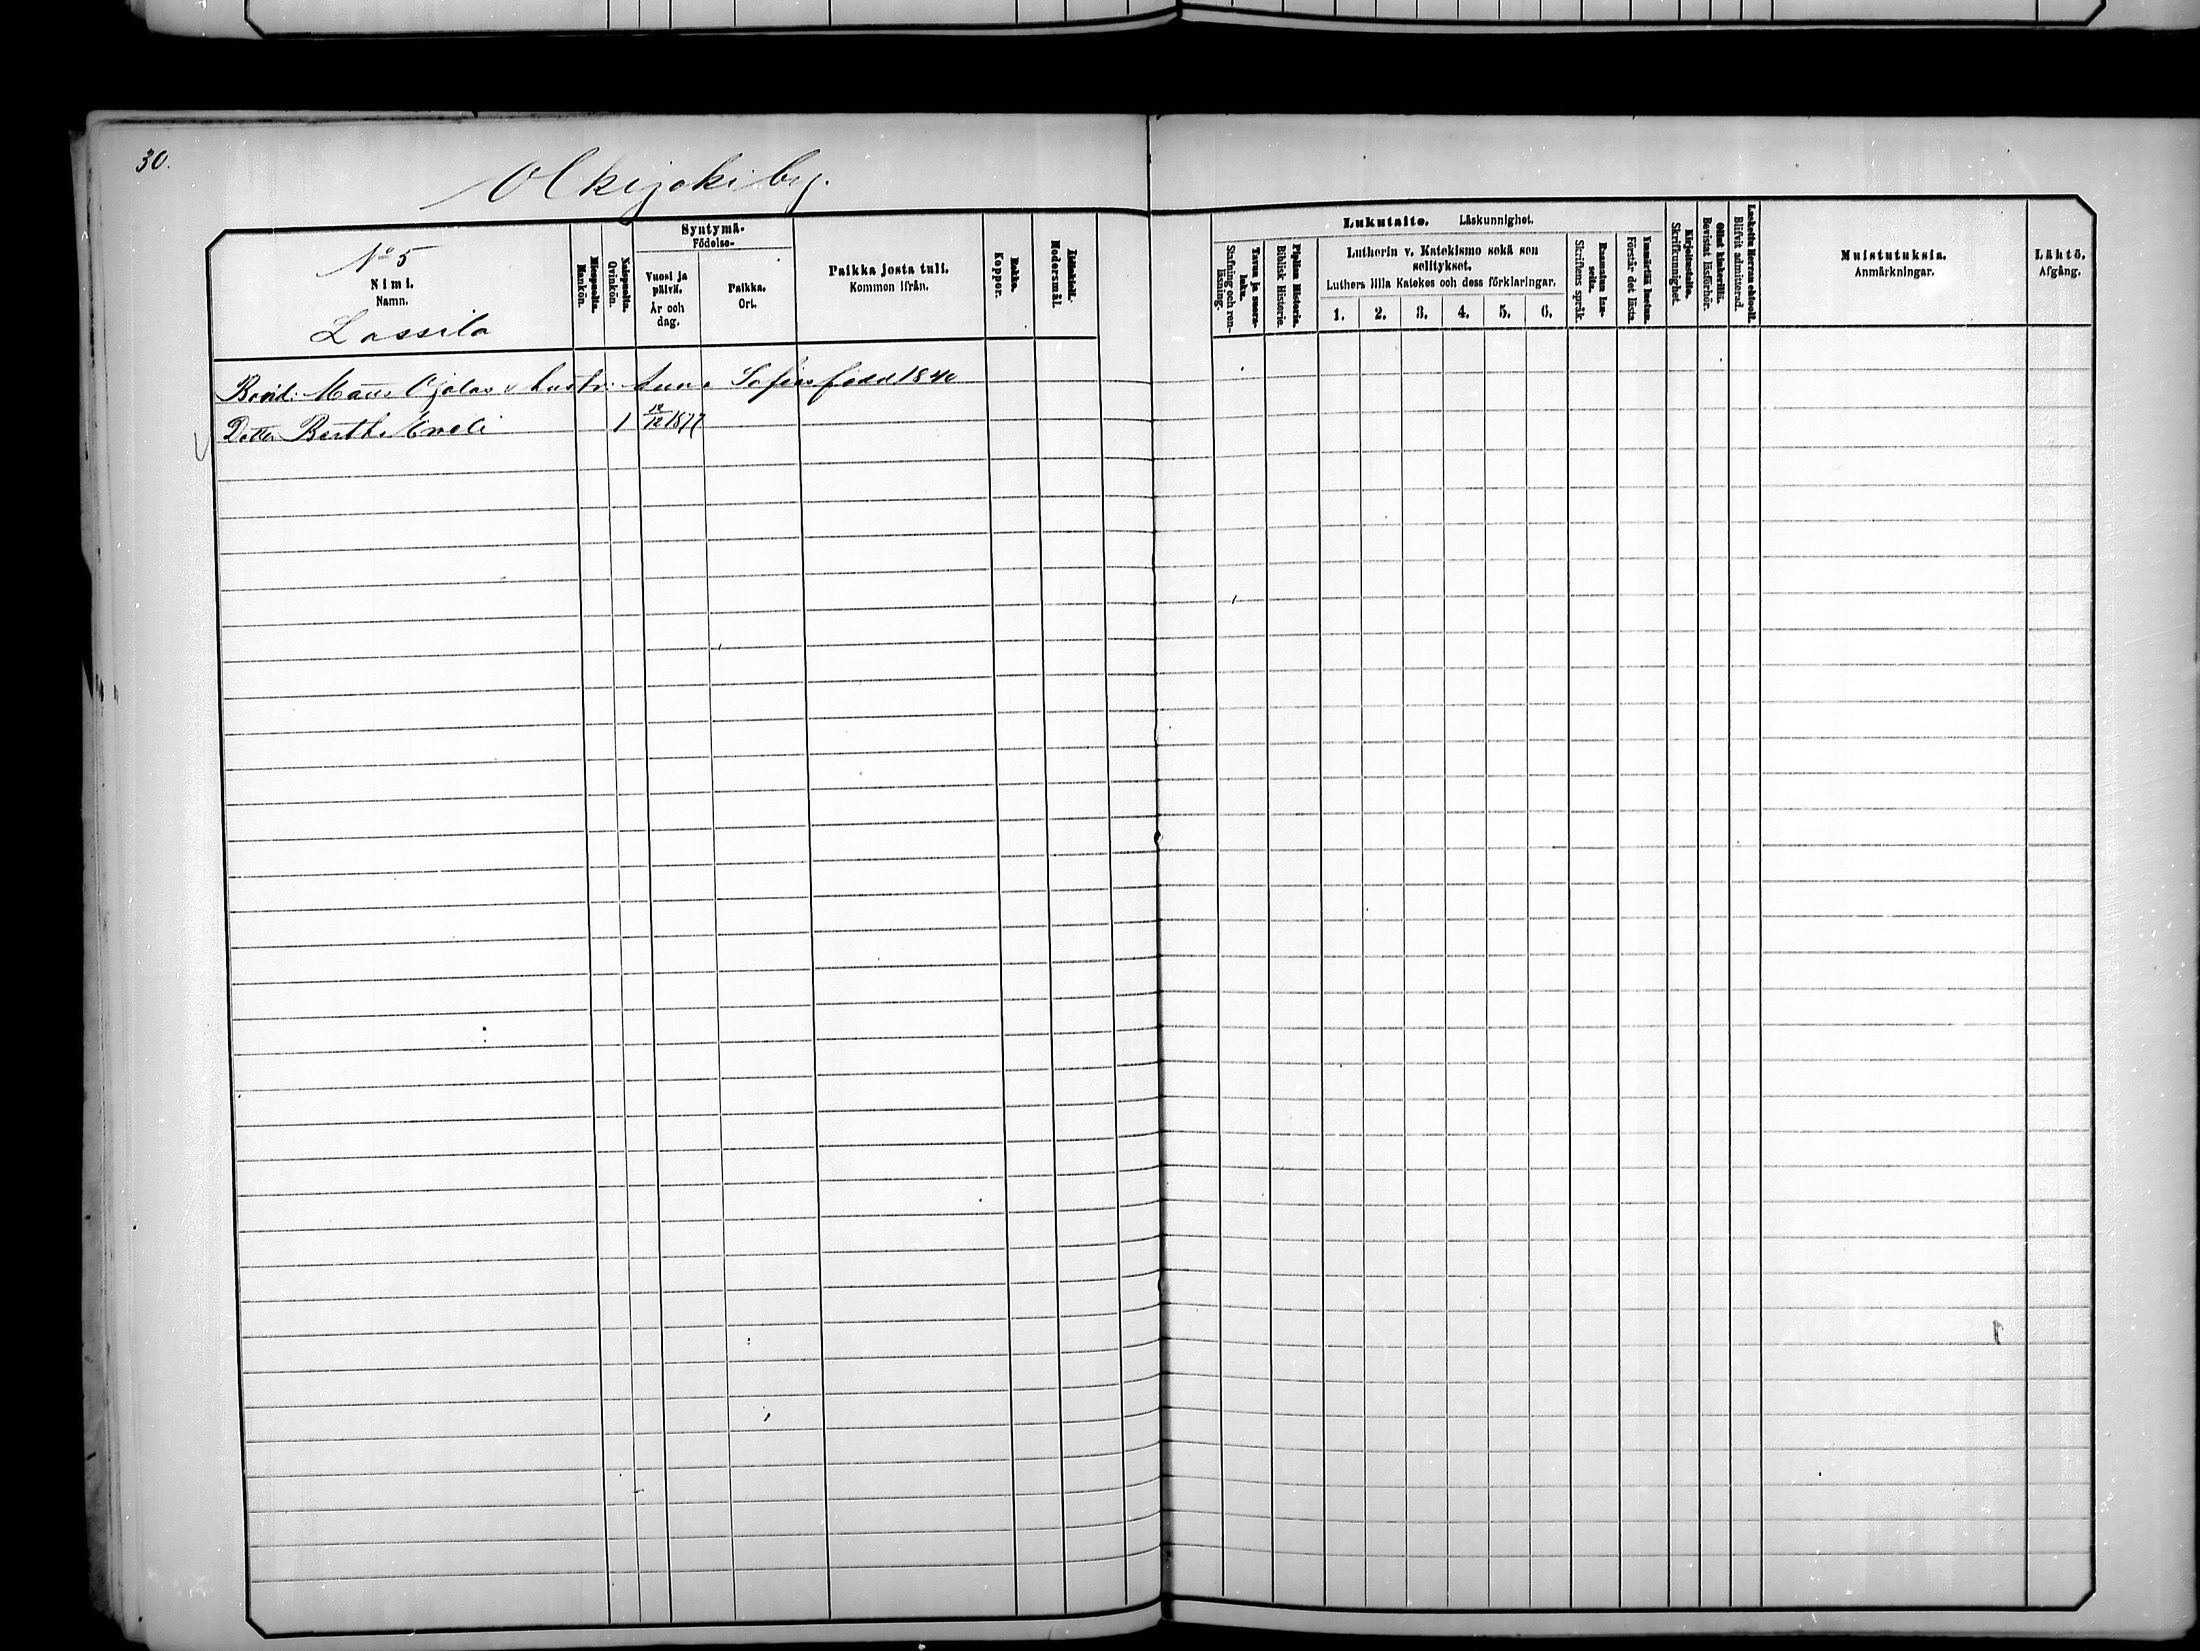 30.
Olkijoki by.
No 5
Nimi.
Namn.
Lassila
Miespuolta.
Mankön.
Naispuolta.
Qvinkön.
Syntymä-
Födelse-
Vuosi ja
päivä.
År och
dag.
Paikka.
Ort.
Paikka josta tull.
Kommen ifrån.
Rokko.
Koppor.
Äidinkieli.
Modersmål.
Bond: Mans Ojalas hustr: Anna Sofia född 1840
Dotter Bertha Emeli 1 12/12 1877
Lukutaito. Läskunnighet.
Tavuu ja suora-
luku.
Stafning och ren-
läsning.
Piplian Historia.
Biblisk Historie.
Lutherin v. Katekismo sekä sen
selitykset.
Luthers lilla Katekes och dess förklaringar.
1. 2. 3. 4. 5. 6.
Raamatun lau-
seita.
Skriftens språk.
Ymmärtää luetun.
Förstår det lästa.
Kirjoitustaito.
Skrifkunnighet.
Ollut lukusilla.
Bevistat läsförhör.
Laskettu Herran ehtooll.
Blifvit admitterad.
Muistutuksia.
Anmärkningar.
Lähtö.
Afgång.